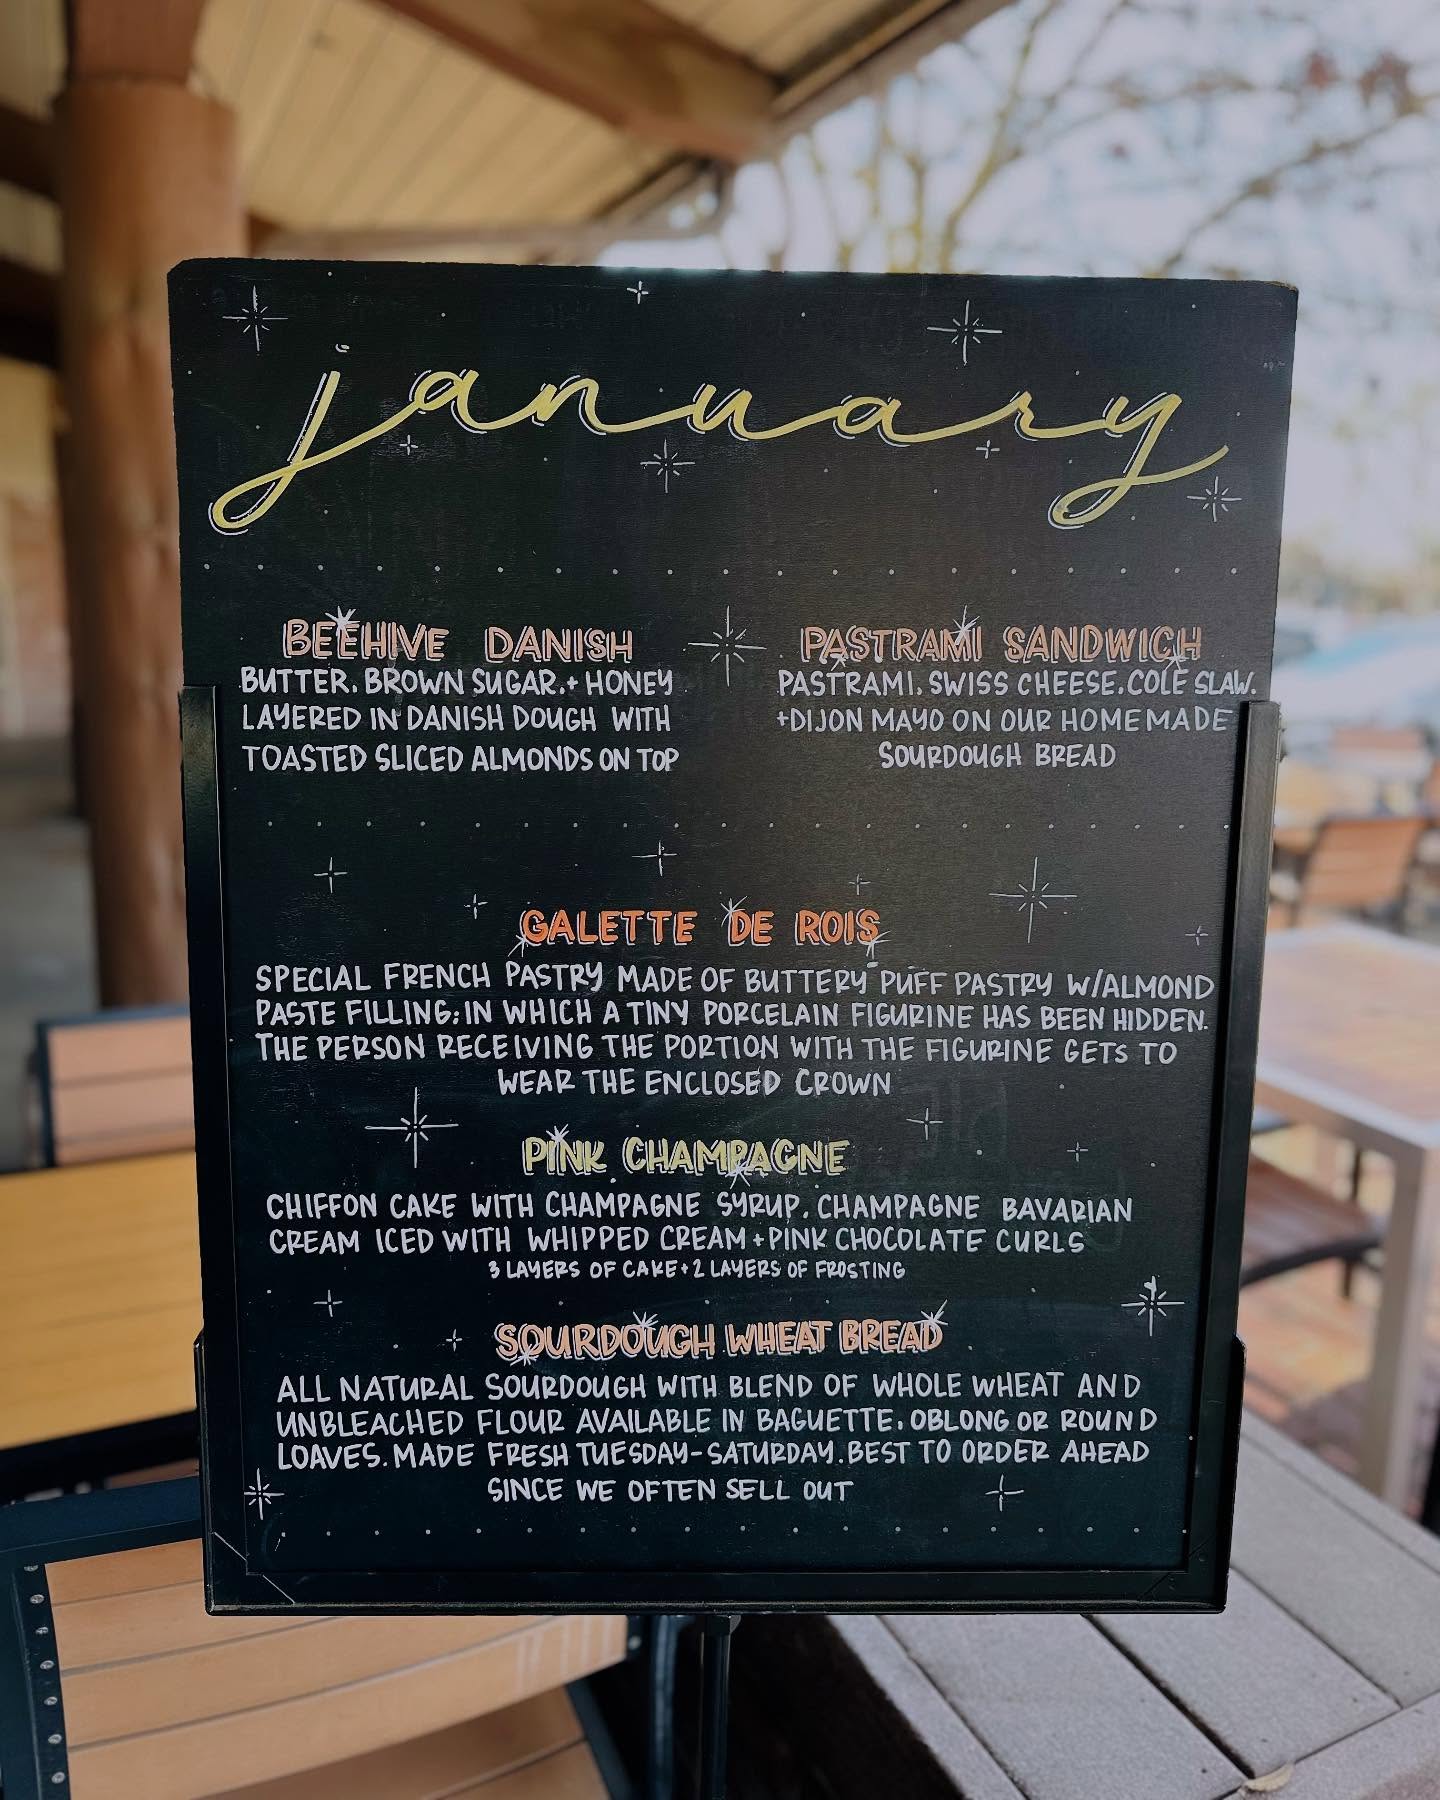 january
BEEHIVE DANISH
BUTTER, BROWN SUGAR, + HONEY
LAYERED IN DANISH DOUGH WITH
TOASTED SLICED ALMONDS ON TOP
PASTRAMI SANDWICH
PASTRAMI, SWISS CHEESE, COLE SLAW,
+DIJON MAYO ON OUR HOMEMADE
SOURDOUGH BREAD
GALETTE DE ROIS
SPECIAL FRENCH PASTRY MADE OF BUTTERY PUFF PASTRY W/ALMOND
PASTE FILLING; IN WHICH A TINY PORCELAIN FIGURINE HAS BEEN HIDDEN.
THE PERSON RECEIVING THE PORTION WITH THE FIGURINE GETS TO
WEAR THE ENCLOSED CROWN
PINK CHAMPAGNE
CHIFFON CAKE WITH CHAMPAGNE SYRUP, CHAMPAGNE BAVARIAN
CREAM ICED WITH WHIPPED CREAM + PINK CHOCOLATE CURLS
3 LAYERS OF CAKE + 2 LAYERS OF FROSTING
SOURDOUGH WHEAT BREAD
ALL NATURAL SOURDOUGH WITH BLEND OF WHOLE WHEAT AND
UNBLEACHED FLOUR AVAILABLE IN BAGUETTE, OBLONG OR ROUND
LOAVES. MADE FRESH TUESDAY-SATURDAY. BEST TO ORDER AHEAD
SINCE WE OFTEN SELL OUT